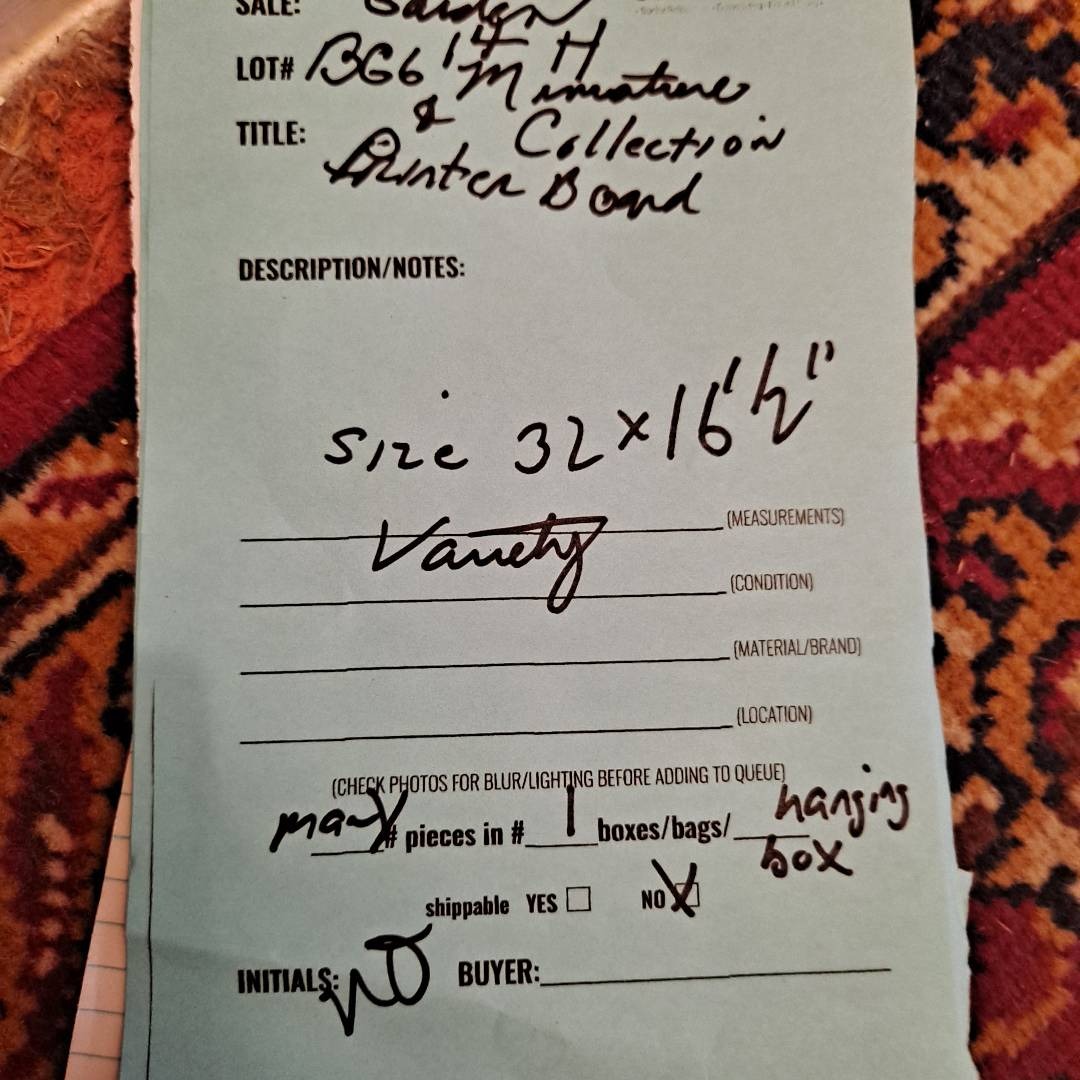 SALE: Garden
LOT# BG6 14 H
Miniature
TITLE: & Collection
Printer Board
DESCRIPTION/NOTES:
size 32 x 16 1/2"
(MEASUREMENTS)
Variety
(CONDITION)
(MATERIAL/BRAND)
(LOCATION)
(CHECK PHOTOS FOR BLUR/LIGHTING BEFORE ADDING TO QUEUE)
many # pieces in # 1 boxes/bags/ hanging
box
shippable YES NO X
INITIALS: BUYER: